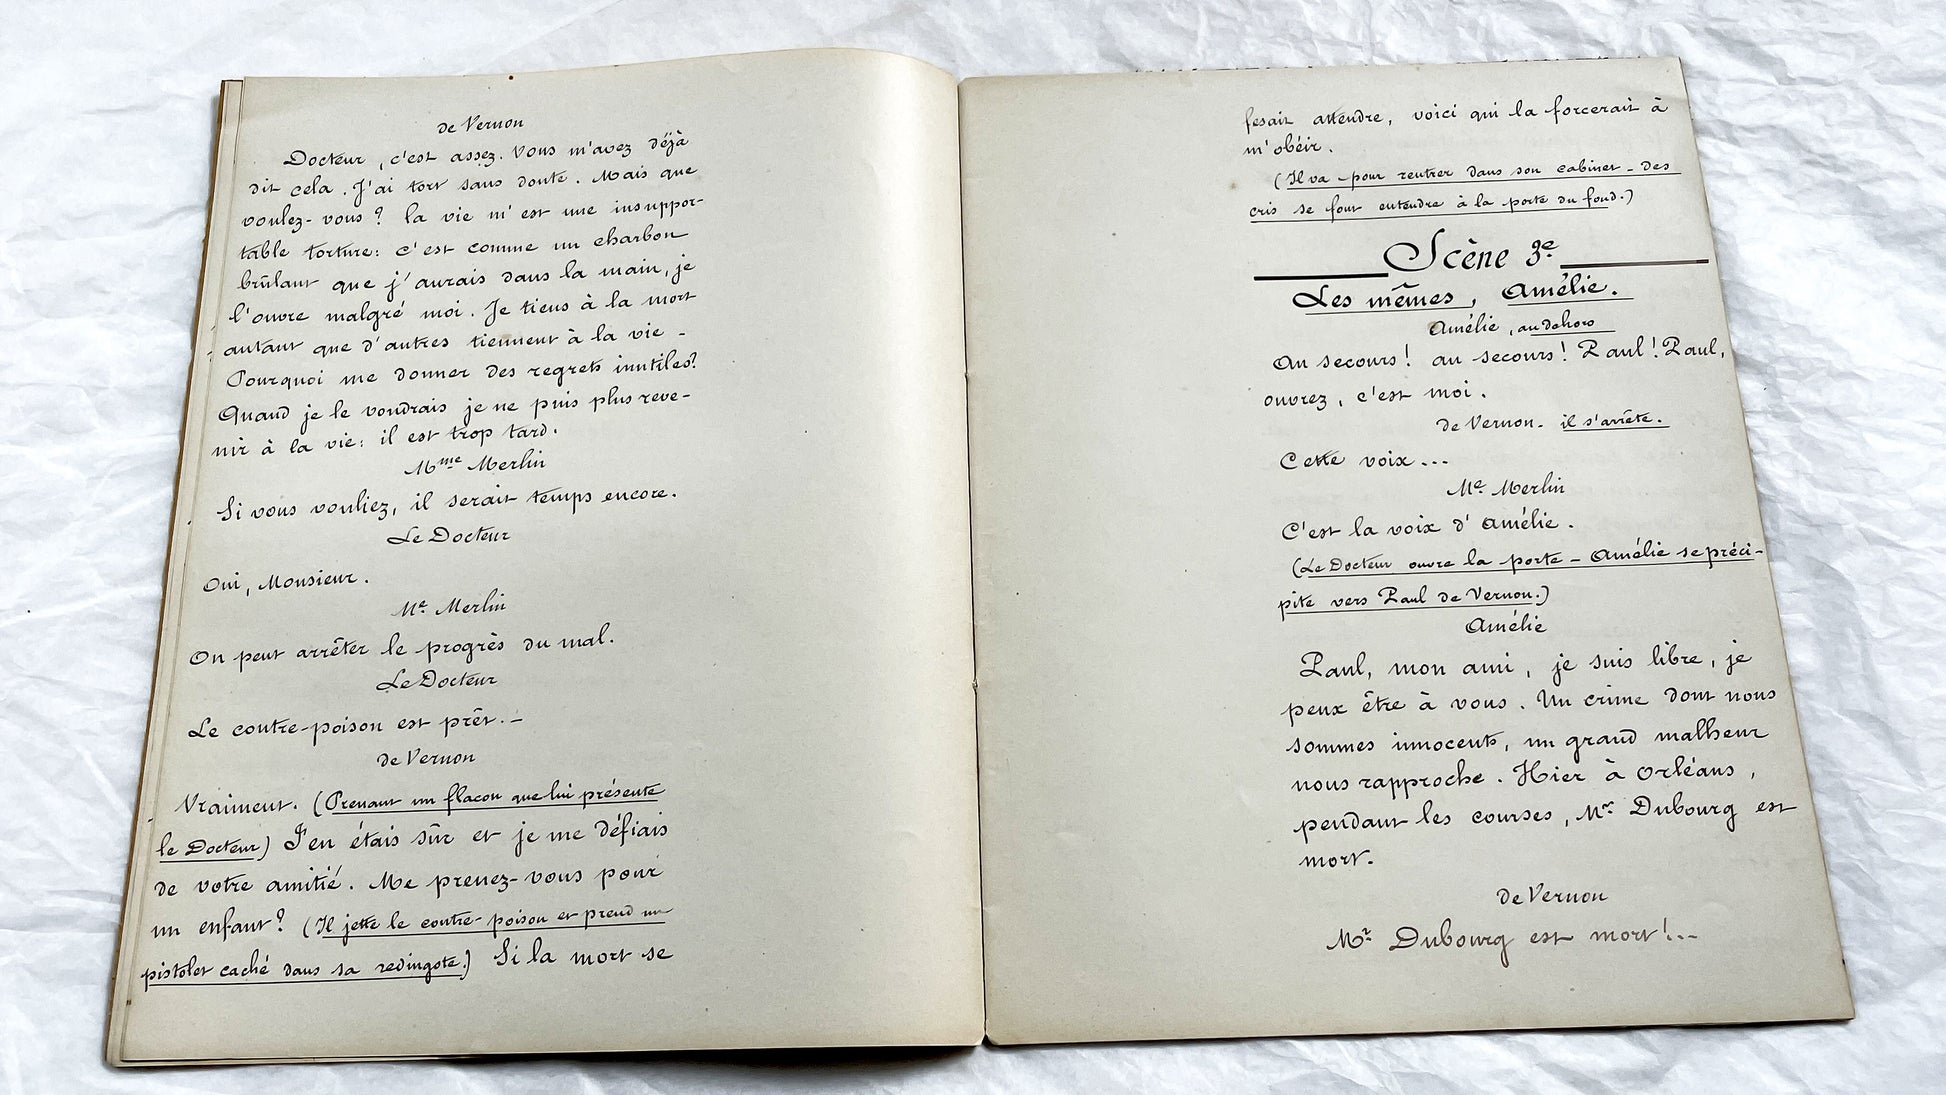 de Vernon
Docteur, c'est assez. Vous m'avez déjà
dit cela. J'ai tort sans doute. Mais que
voulez-vous? la vie m'est une insuppor-
table torture: c'est comme un charbon
brûlant que j'aurais dans la main, je
l'ouvre malgré moi. Je tiens à la mort
autant que d'autres tiennent à la vie -
Pourquoi me donner des regrets inutiles?
Quand je le voudrais je ne puis plus reve-
nir à la vie: il est trop tard.
Mme Merlin
Si vous vouliez, il serait temps encore.
Le Docteur
Oui, Monsieur.
Me. Merlin
On peut arrêter le progrès du mal.
Le Docteur
Le contre-poison est prêt. -
de Vernon
Vraiment. (Prenant un flacon que lui présente
le Docteur) J'en étais sûr et je me défiais
de votre amitié. Me prenez-vous pour
un enfant? (Il jette le contre-poison et prend un
pistolet caché dans sa redingote.) Si la mort se
fesait attendre, voici qui la forcerait à
m'obéir.
(Il va pour rentrer dans son cabinet - des
cris se font entendre à la porte du fond.)
Scène 3e.
Les mêmes, Amélie.
Amélie, au dehors
Au secours! au secours! Paul! Paul,
ouvrez, c'est moi.
de Vernon. il s'arrête.
Cette voix...
Me. Merlin
C'est la voix d'Amélie.
(Le Docteur ouvre la porte - Amélie se préci-
pite vers Paul de Vernon.)
Amélie
Paul, mon ami, je suis libre, je
peux être à vous. Un crime dont nous
sommes innocents, un grand malheur
nous rapproche. Hier à Orléans,
pendant les courses, Mr Dubourg est
mort.
de Vernon
Mr. Dubourg est mort!..